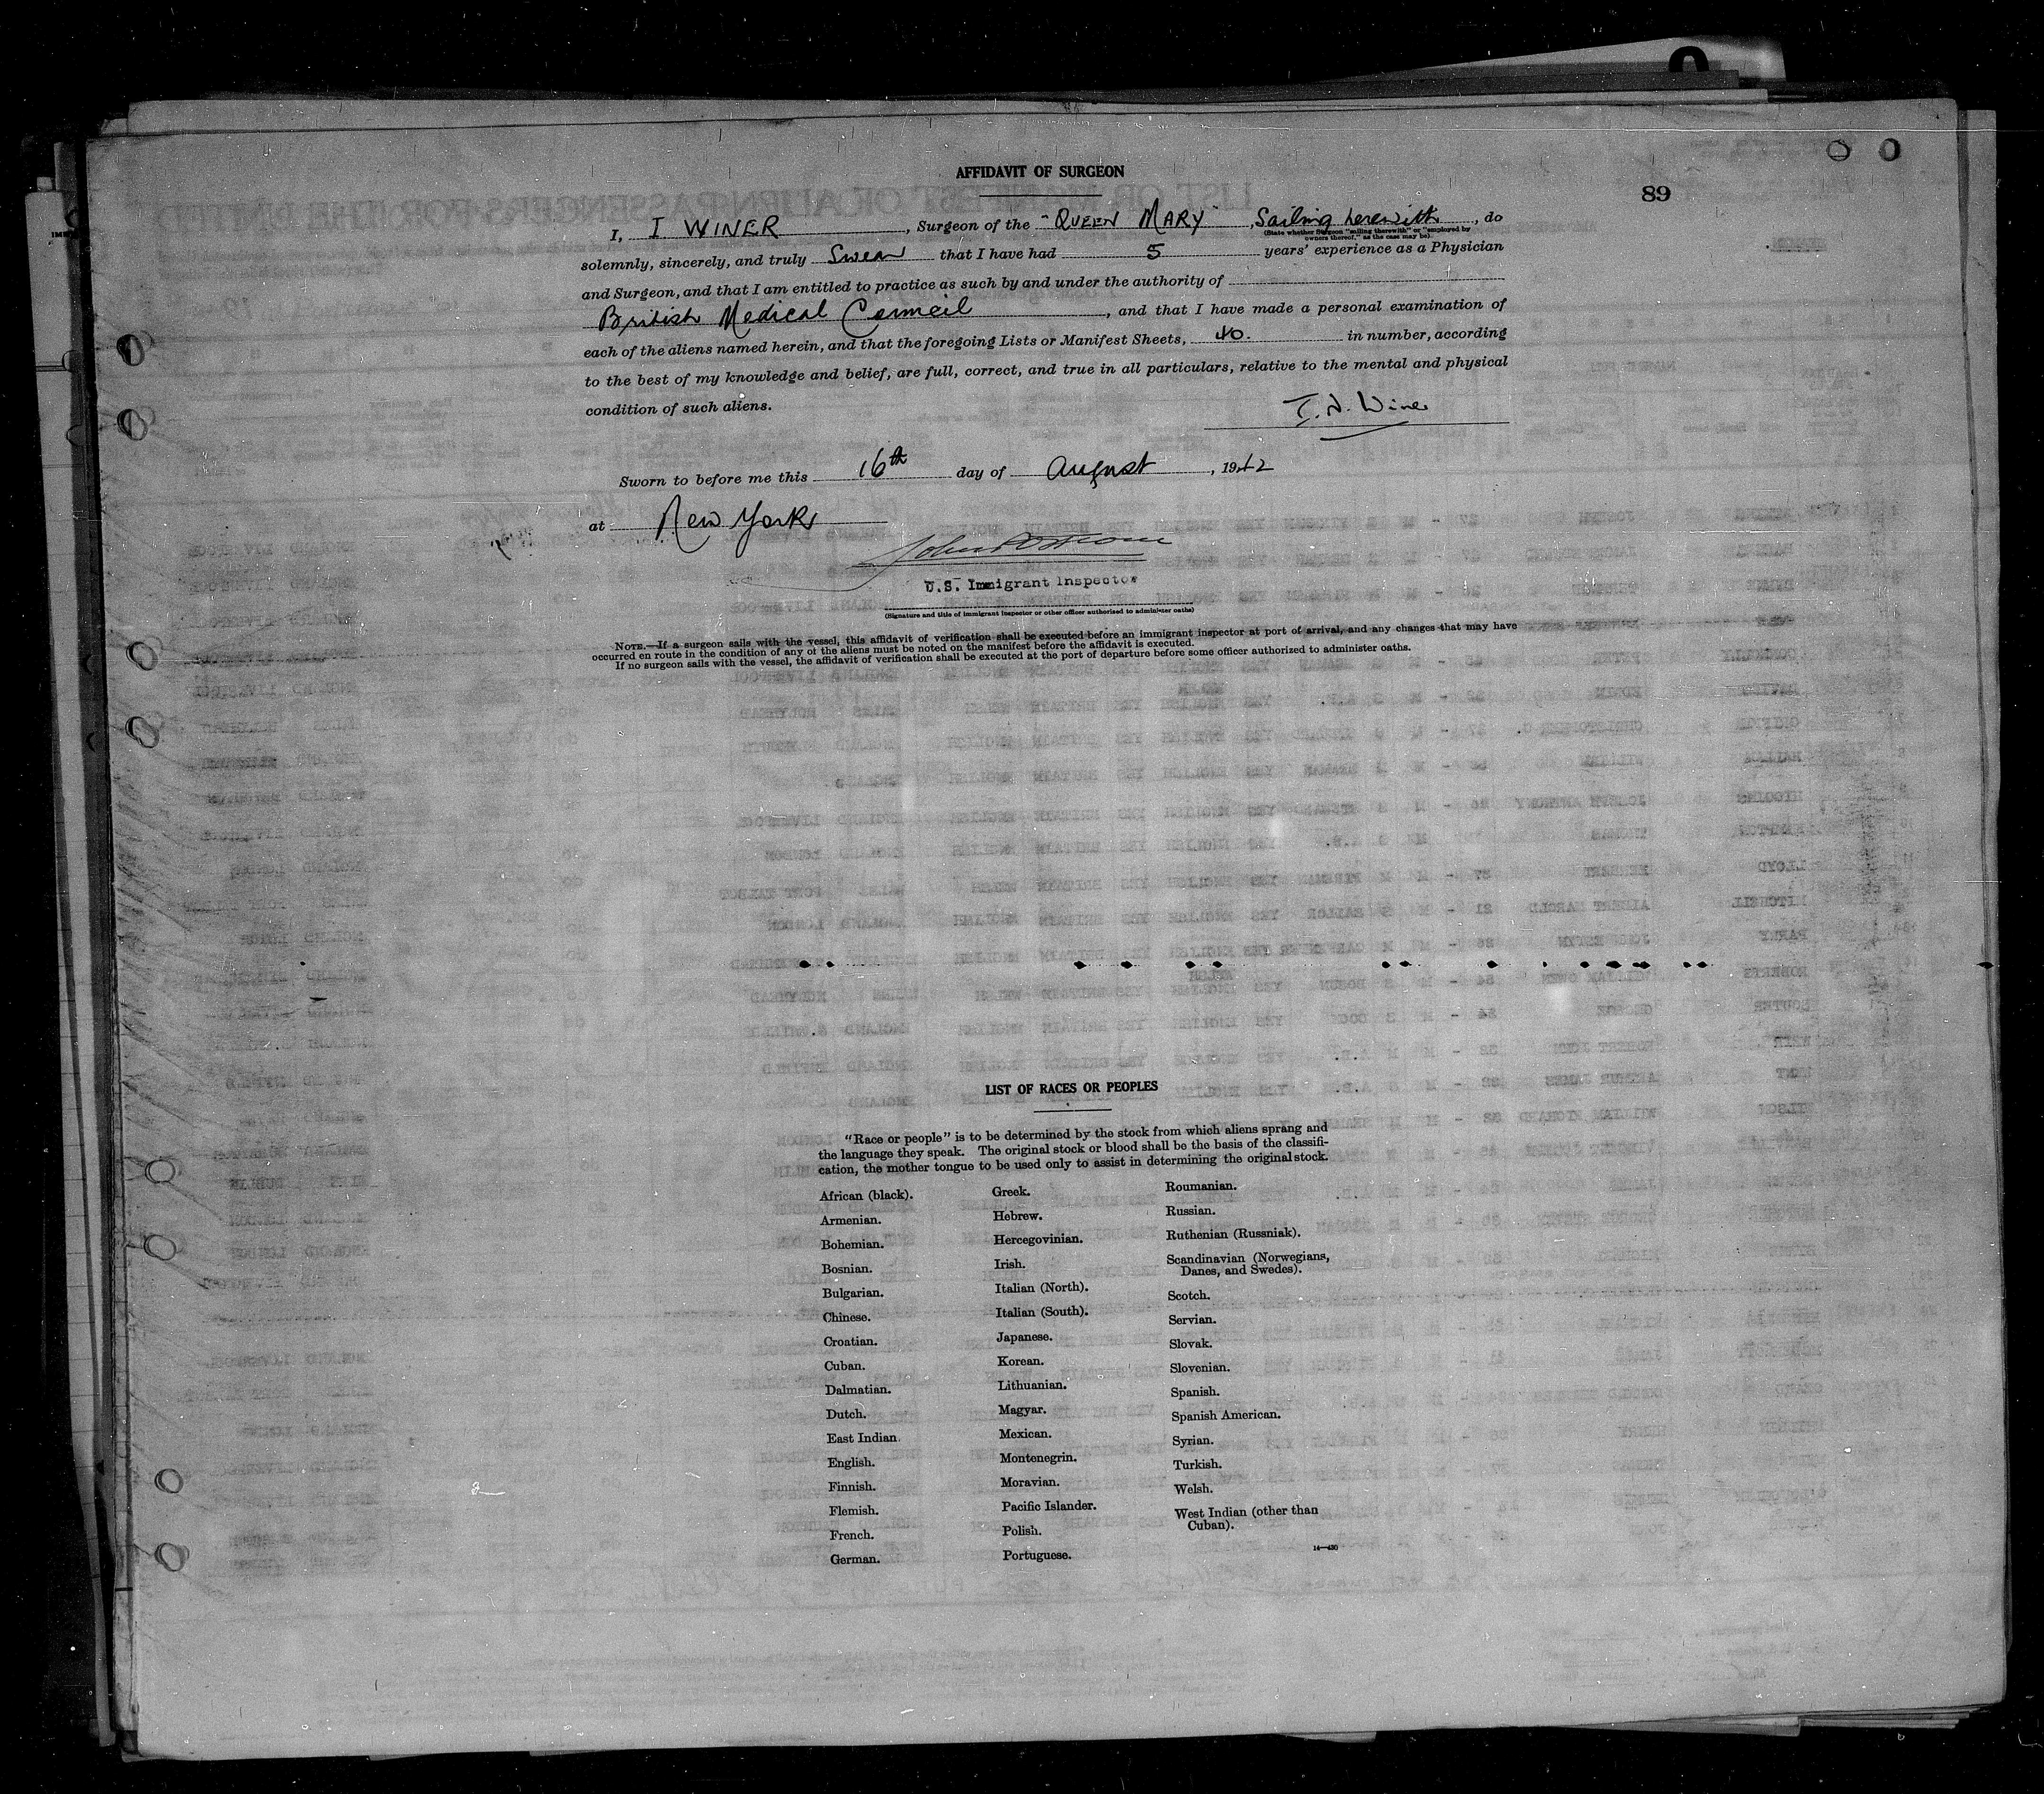 AFFIDAVIT OF SURGEON
89
I, I WINER, Surgeon of the "QUEEN MARY", Sailing herewith, do
(State whether Surgeon "sailing therewith" or "employed by
owners thereof," as the case may be).
solemnly, sincerely, and truly Swear that I have had 5 years' experience as a Physician
and Surgeon, and that I am entitled to practice as such by and under the authority of
British Medical Council, and that I have made a personal examination of
each of the aliens named herein, and that the foregoing Lists or Manifest Sheets, 40. in number, according
to the best of my knowledge and belief, are full, correct, and true in all particulars, relative to the mental and physical
condition of such aliens.
I. N. Winer
Sworn to before me this 16th day of August, 1942
at New York
U.S. Immigrant Inspector
(Signature and title of immigrant inspector or other officer authorized to administer oaths)
NOTE.—If a surgeon sails with the vessel, this affidavit of verification shall be executed before an immigrant inspector at port of arrival, and any changes that may have
occurred en route in the condition of any of the aliens must be noted on the manifest before the affidavit is executed.
If no surgeon sails with the vessel, the affidavit of verification shall be executed at the port of departure before some officer authorized to administer oaths.
LIST OF RACES OR PEOPLES
"Race or people" is to be determined by the stock from which aliens sprang and
the language they speak. The original stock or blood shall be the basis of the classifi-
cation, the mother tongue to be used only to assist in determining the original stock.
African (black).
Armenian.
Bohemian.
Bosnian.
Bulgarian.
Chinese.
Croatian.
Cuban.
Dalmatian.
Dutch.
East Indian.
English.
Finnish.
Flemish.
French.
German.
Greek.
Hebrew.
Hercegovinian.
Irish.
Italian (North).
Italian (South).
Japanese.
Korean.
Lithuanian.
Magyar.
Mexican.
Montenegrin.
Moravian.
Pacific Islander.
Polish.
Portuguese.
Roumanian.
Russian.
Ruthenian (Russniak).
Scandinavian (Norwegians,
Danes, and Swedes).
Scotch.
Servian.
Slovak.
Slovenian.
Spanish.
Spanish American.
Syrian.
Turkish.
Welsh.
West Indian (other than
Cuban).
14—430